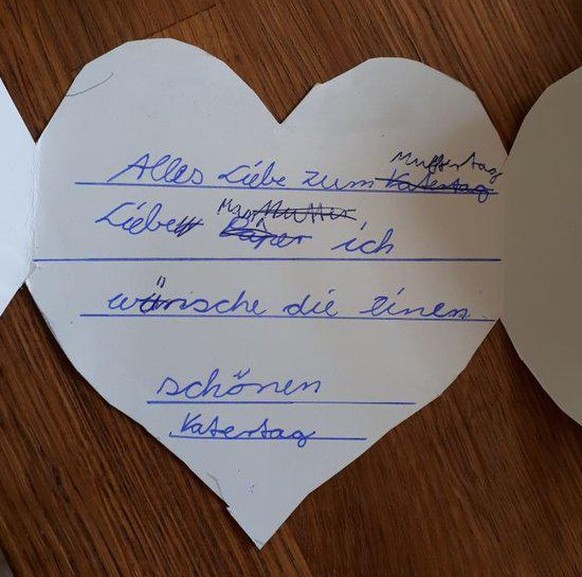 Muttertag
Alles Liebe zum Vatertag
Mutter
Liebe Papa ich
wünsche die einen
schönen
Vatertag